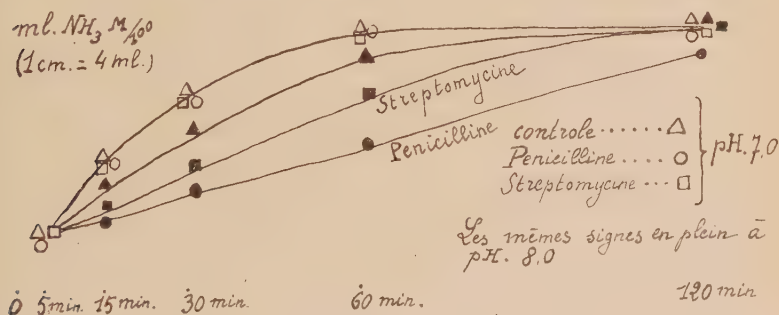 ml. NH₃ M/400
(1 cm. = 4 ml.)
Streptomycine
Penicilline
controle ...... △
Penicilline .... ○
Streptomycine ... □
pH. 7,0
Les mêmes signes en plein à
pH. 8,0
0 5 min. 15 min. 30 min. 60 min. 120 min